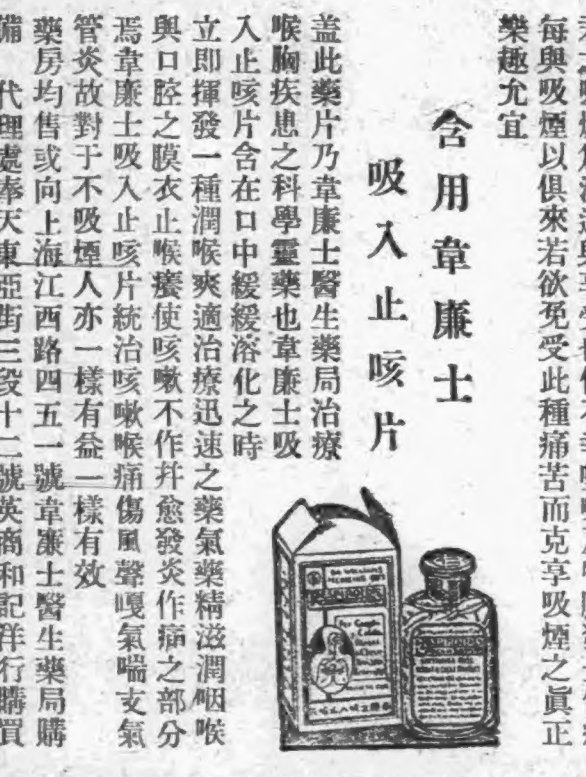 每與吸煙以俱來若欲免受此種痛苦而克享吸煙之眞正
樂趣尤宜
含用韋廉士
吸入止咳片
盖此藥片乃韋廉士醫生藥局治療
喉胸疾患之科學靈藥也韋廉士吸
入止咳片含在口中緩緩溶化之時
立即揮發一種潤喉爽適治療迅速之藥氣藥精滋潤咽喉
與口腔之膜衣止喉癢使咳嗽不作幷愈發炎作痛之部分
焉韋廉士吸入止咳片統治咳嗽喉痛傷風聲嘎氣喘支氣
管炎故對于不吸煙人亦一樣有益一樣有效
藥房均售或向上海江西路四五一號韋廉士醫生藥局購
備 代理處奉天東亞街三段十二號英商和記洋行購買
DR. WILLIAMS
MEDICINE
For Coughs
Colds